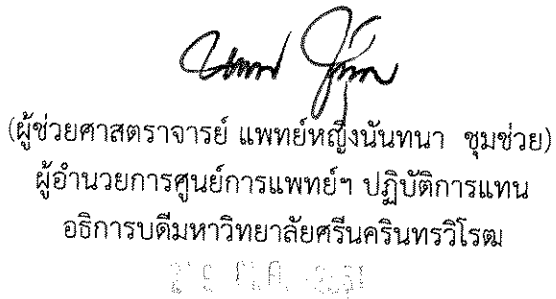 (ผู้ช่วยศาสตราจารย์ แพทย์หญิงนันทนา ชุมช่วย)
ผู้อำนวยการศูนย์การแพทย์ฯ ปฏิบัติการแทน
อธิการบดีมหาวิทยาลัยศรีนครินทรวิโรฒ